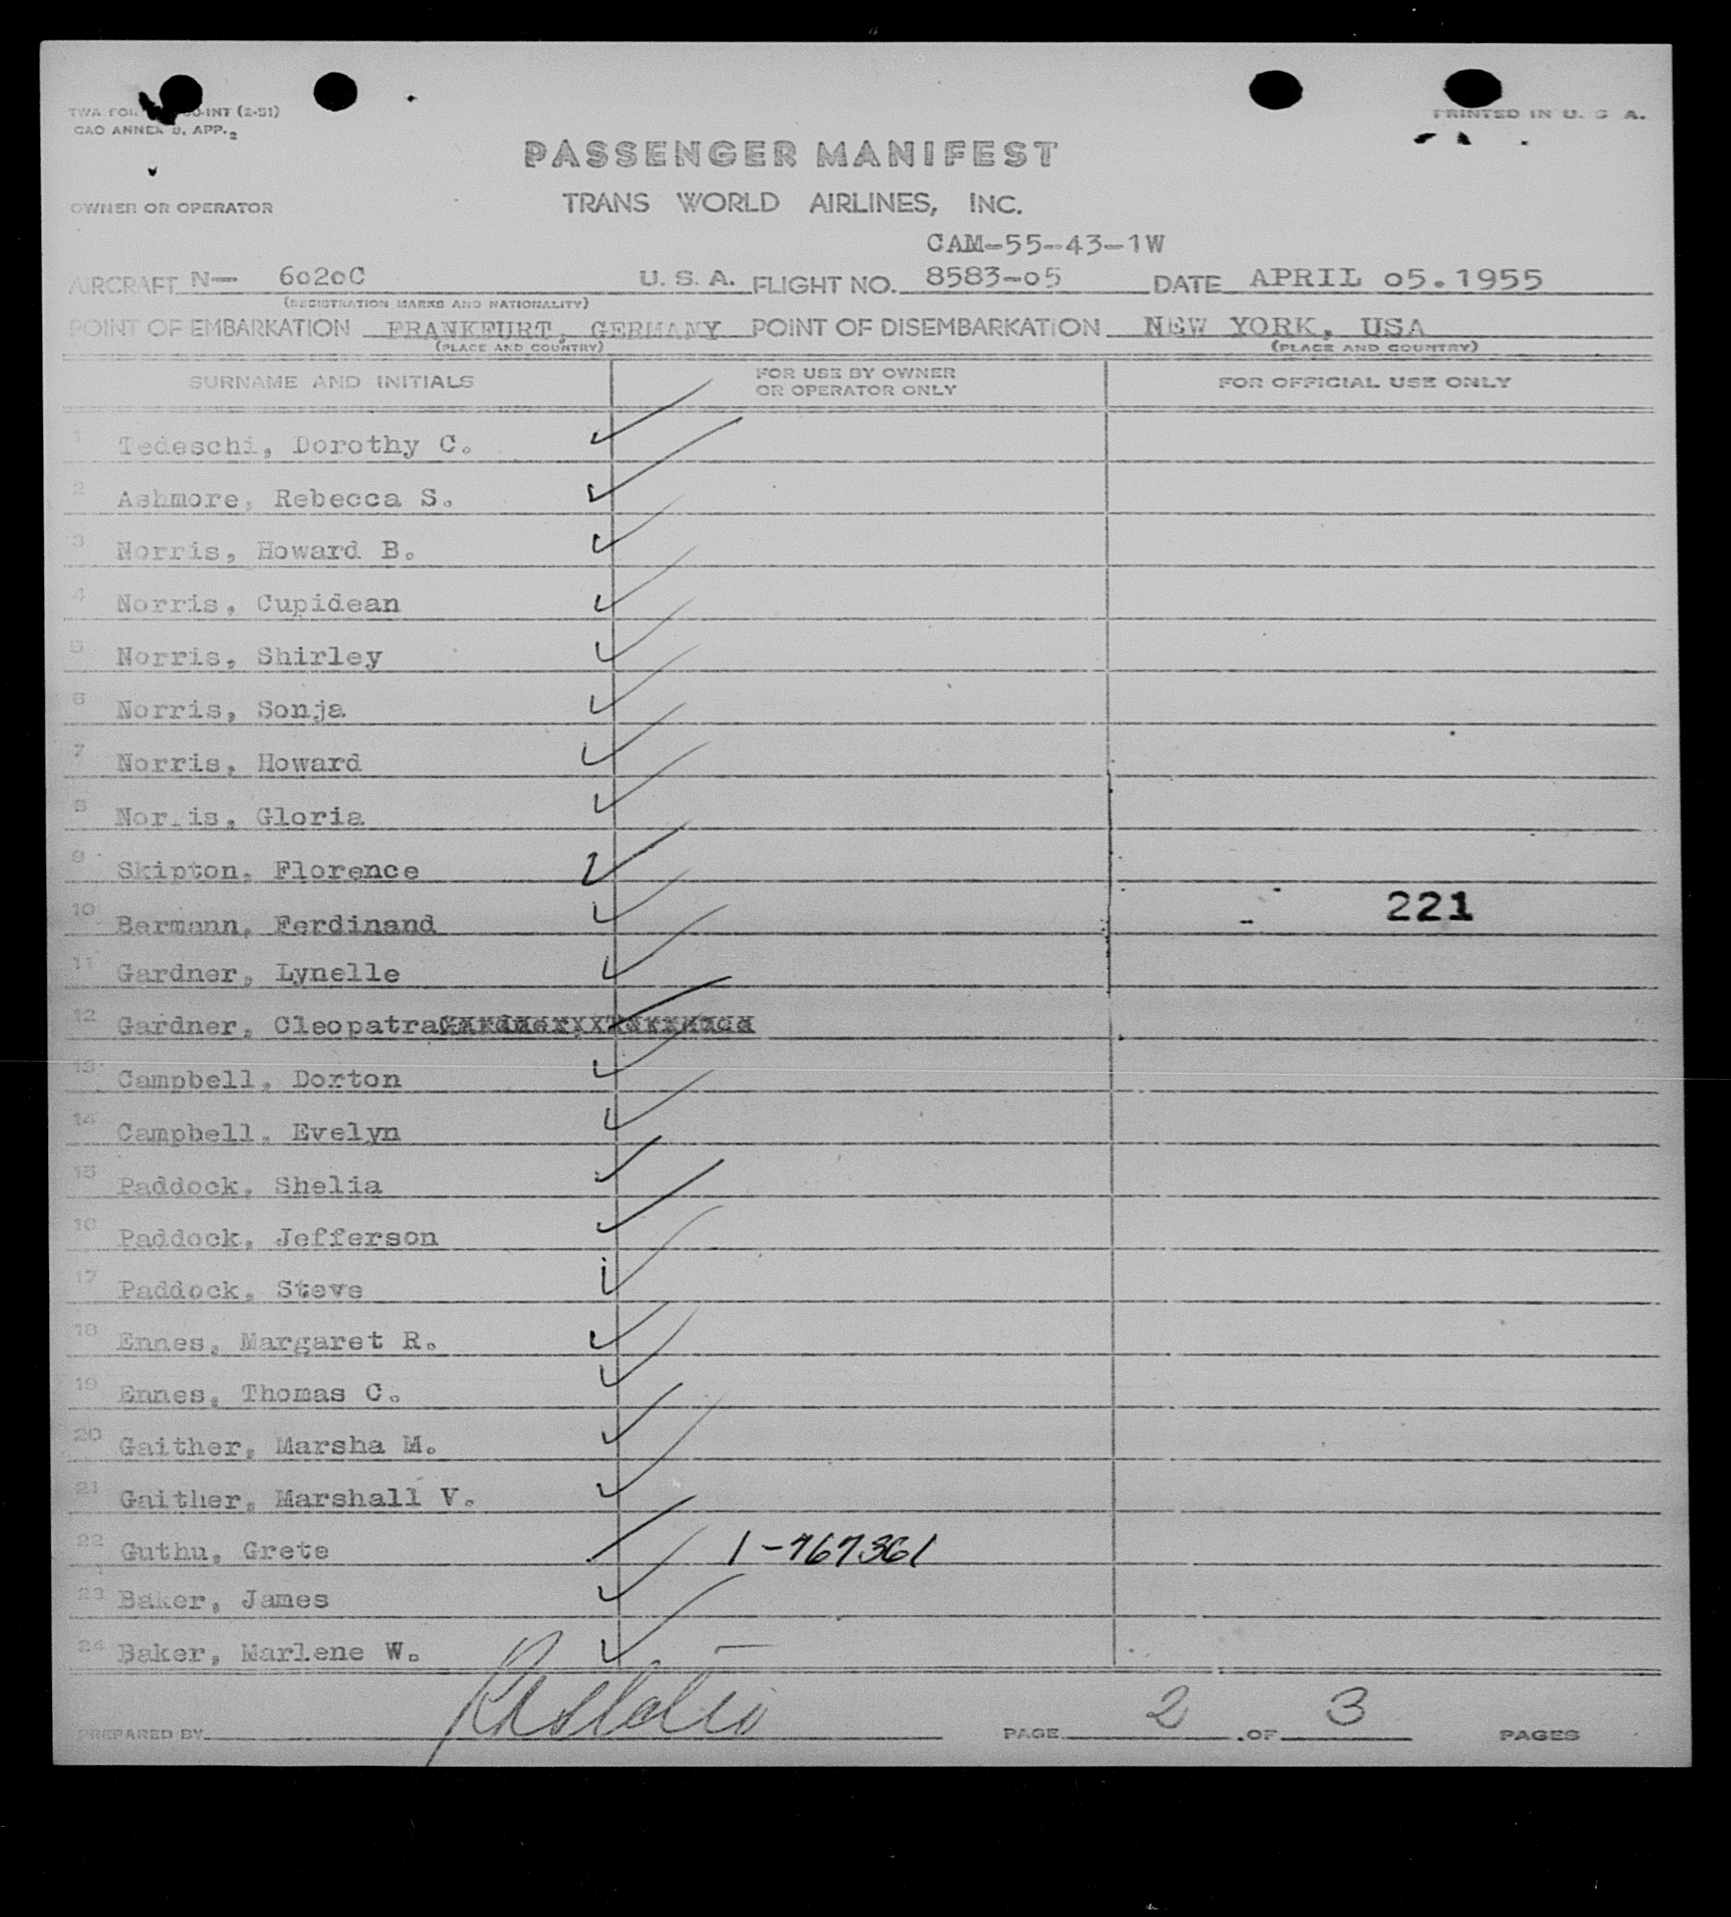 CAO ANNEX 8, APP. 2
PRINTED IN U. S. A.
PASSENGER MANIFEST
OWNER OR OPERATOR TRANS WORLD AIRLINES, INC.
CAM-55-43-1W
AIRCRAFT N- 6020C U. S. A. FLIGHT NO. 8583-05 DATE APRIL 05.1955
(REGISTRATION MARKS AND NATIONALITY)
POINT OF EMBARKATION FRANKFURT, GERMANY POINT OF DISEMBARKATION NEW YORK, USA
(PLACE AND COUNTRY) (PLACE AND COUNTRY)
SURNAME AND INITIALS FOR USE BY OWNER OR OPERATOR ONLY FOR OFFICIAL USE ONLY
1 Tedeschi, Dorothy C.
2 Ashmore, Rebecca S.
3 Norris, Howard B.
4 Norris, Cupidean
5 Norris, Shirley
6 Norris, Sonja
7 Norris, Howard
8 Norris, Gloria
9 Skipton, Florence
10 Bermann, Ferdinand 221
11 Gardner, Lynelle
12 Gardner, Cleopatra
13 Campbell, Dorton
14 Campbell, Evelyn
15 Paddock, Shelia
16 Paddock, Jefferson
17 Paddock, Steve
18 Ennes, Margaret R.
19 Ennes, Thomas C.
20 Gaither, Marsha M.
21 Gaither, Marshall V.
22 Guthu, Grete 1-767361
23 Baker, James
24 Baker, Marlene W.
PREPARED BY PAGE 2 OF 3 PAGES